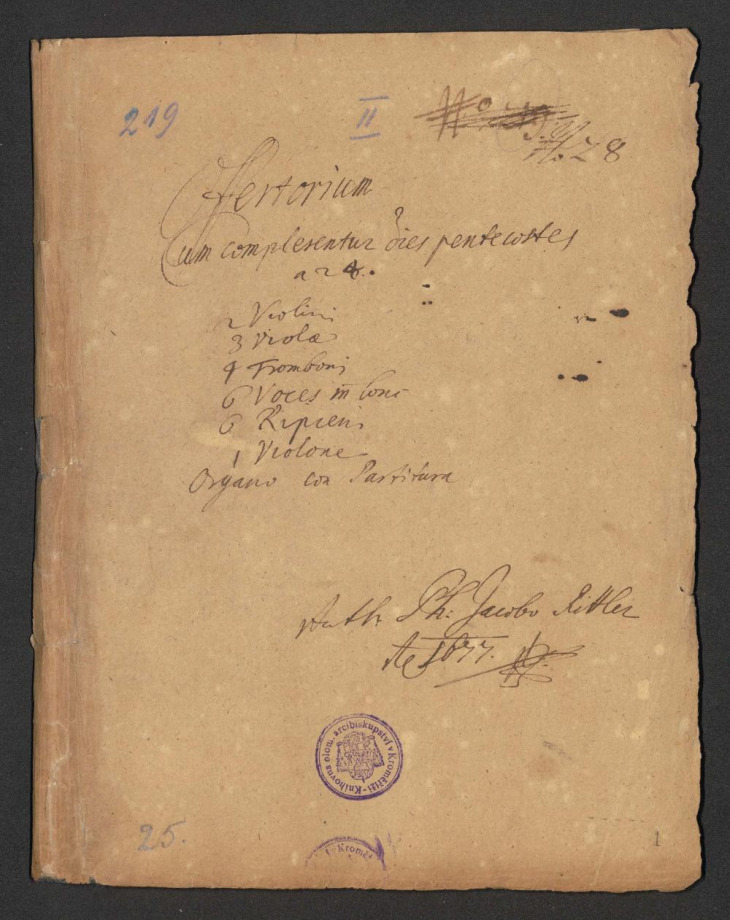 219 II
No 28
Offertorium
Cum complerentur dies pentecostes
a 24.
2 Violini
3 Violæ
4 Tromboni
6 Voces in Conc
6 Ripieni
1 Violone
Organo con Partitura
Auth. Ph: Jacobo Rittler
Ao 1677.
Knihovna olom. arcibiskupství v Kroměříži
Kromě
25.
1